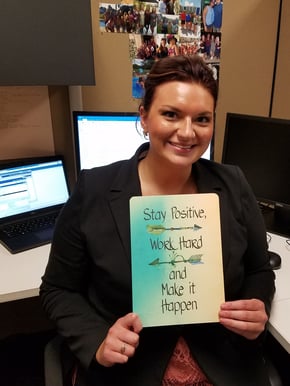 Stay Positive,
Work Hard
and
Make it
Happen